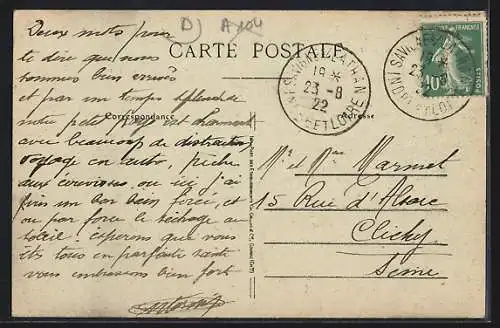 D) A 104
CARTE POSTALE
Correspondance
Adresse
Deux mots pour
te dire que nous
sommes bien arrivés
et par un temps splendide
notre petit pays est charmant
avec beaucoup de distractions
voyage en auto, pêche
aux écrevisses ou ici j'ai
pris un bon bain forcé, et
ou par force le séchage au
soleil. espérons que vous
êtes tous en parfaite santé
vous embrassons bien fort
SAVIGNÉ-LATHAN
19 *
23-8
22
ET LOIRE
SAVIGNÉ
POSTES
Mr et Mme Marmet
15 Rue d'Alsace
Clichy
Seine